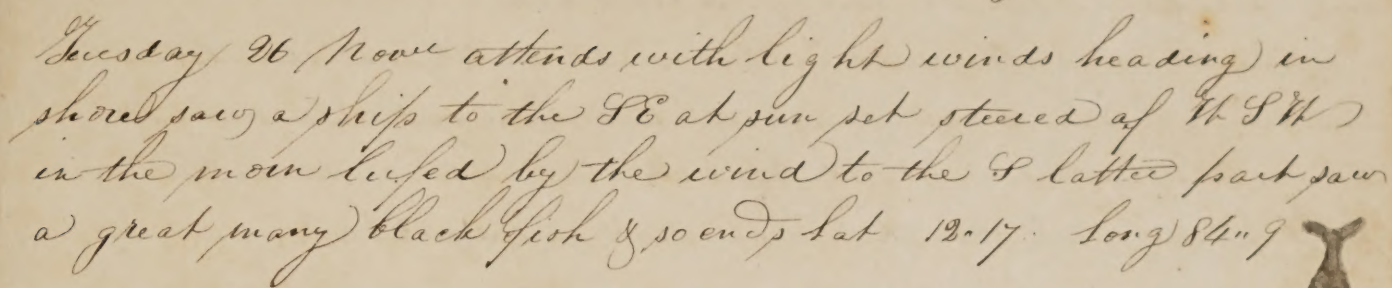 Tuesday 26 Novr attends with light winds heading in
shore saw a ship to the SE at sun set steered of W S W
in the morn lufed by the wind to the S latter part saw
a great many black fish & so ends Lat 12.17. Long 84" 9